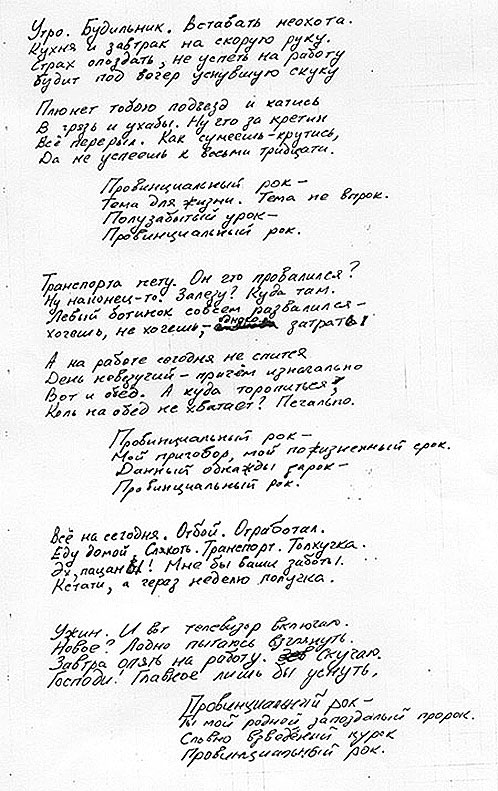 Утро. Будильник. Вставать неохота.
Кухня и завтрак на скорую руку.
Страх опоздать, не успеть на работу
Будит под вечер уснувшую скуку
Плюнет тобою подъезд и катись
В грязь и ухабы. Ну что за кретин
Всё перерыл. Как сумеешь-крутись,
Да не успеешь к восьми тридцати.
Провинциальный рок –
Тема для жизни. Тема не впрок.
Полузабытый урок –
Провинциальный рок.
Транспорта нету. Он что провалился?
Ну наконец-то. Залезу? Куда там.
Левый ботинок совсем развалился –
хочешь, не хочешь, – затраты
А на работе сегодня не спится
День невезучий – причём изначально
Вот и обед. А куда торопиться,
Коль на обед не хватает? Печально.
Провинциальный рок –
Мой приговор, мой пожизненный срок.
Данный однажды зарок –
Провинциальный рок.
Всё на сегодня. Отбой. Отработал.
Еду домой. Слякоть. Транспорт. Толкучка.
Эх, пацаны! Мне бы ваши заботы.
Кстати, а через неделю получка.
Ужин. И вот телевизор включаю.
Новое? Ладно пытаюсь взглянуть.
Завтра опять на работу. Скучаю.
Господи! Главное лишь бы уснуть,
Провинциальный рок –
Ты мой родной запоздалый пророк.
Словно взведёный курок
Провинциальный рок.